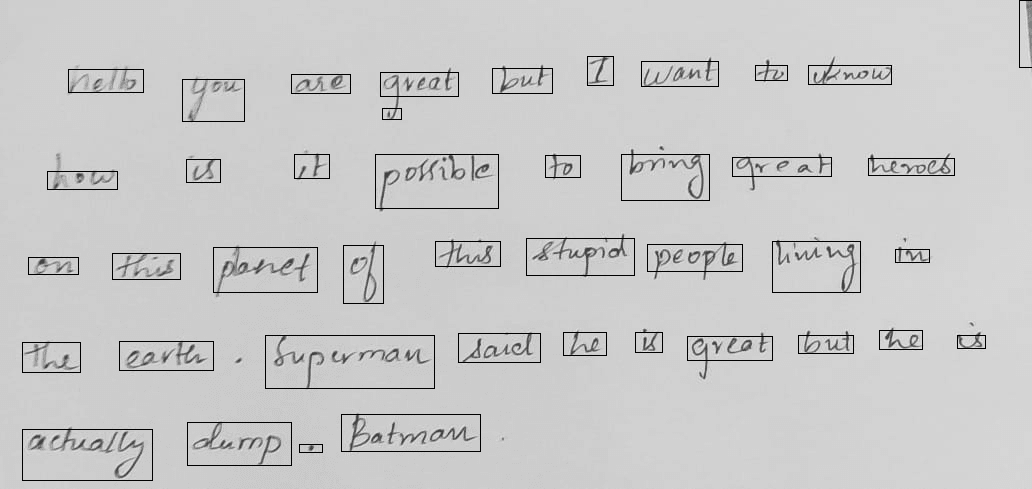 hello you are great but I want to know
how is it possible to bring great heroes
on this planet of this stupid people living in
the earth. Superman said he is great but he is
actually dump - Batman.